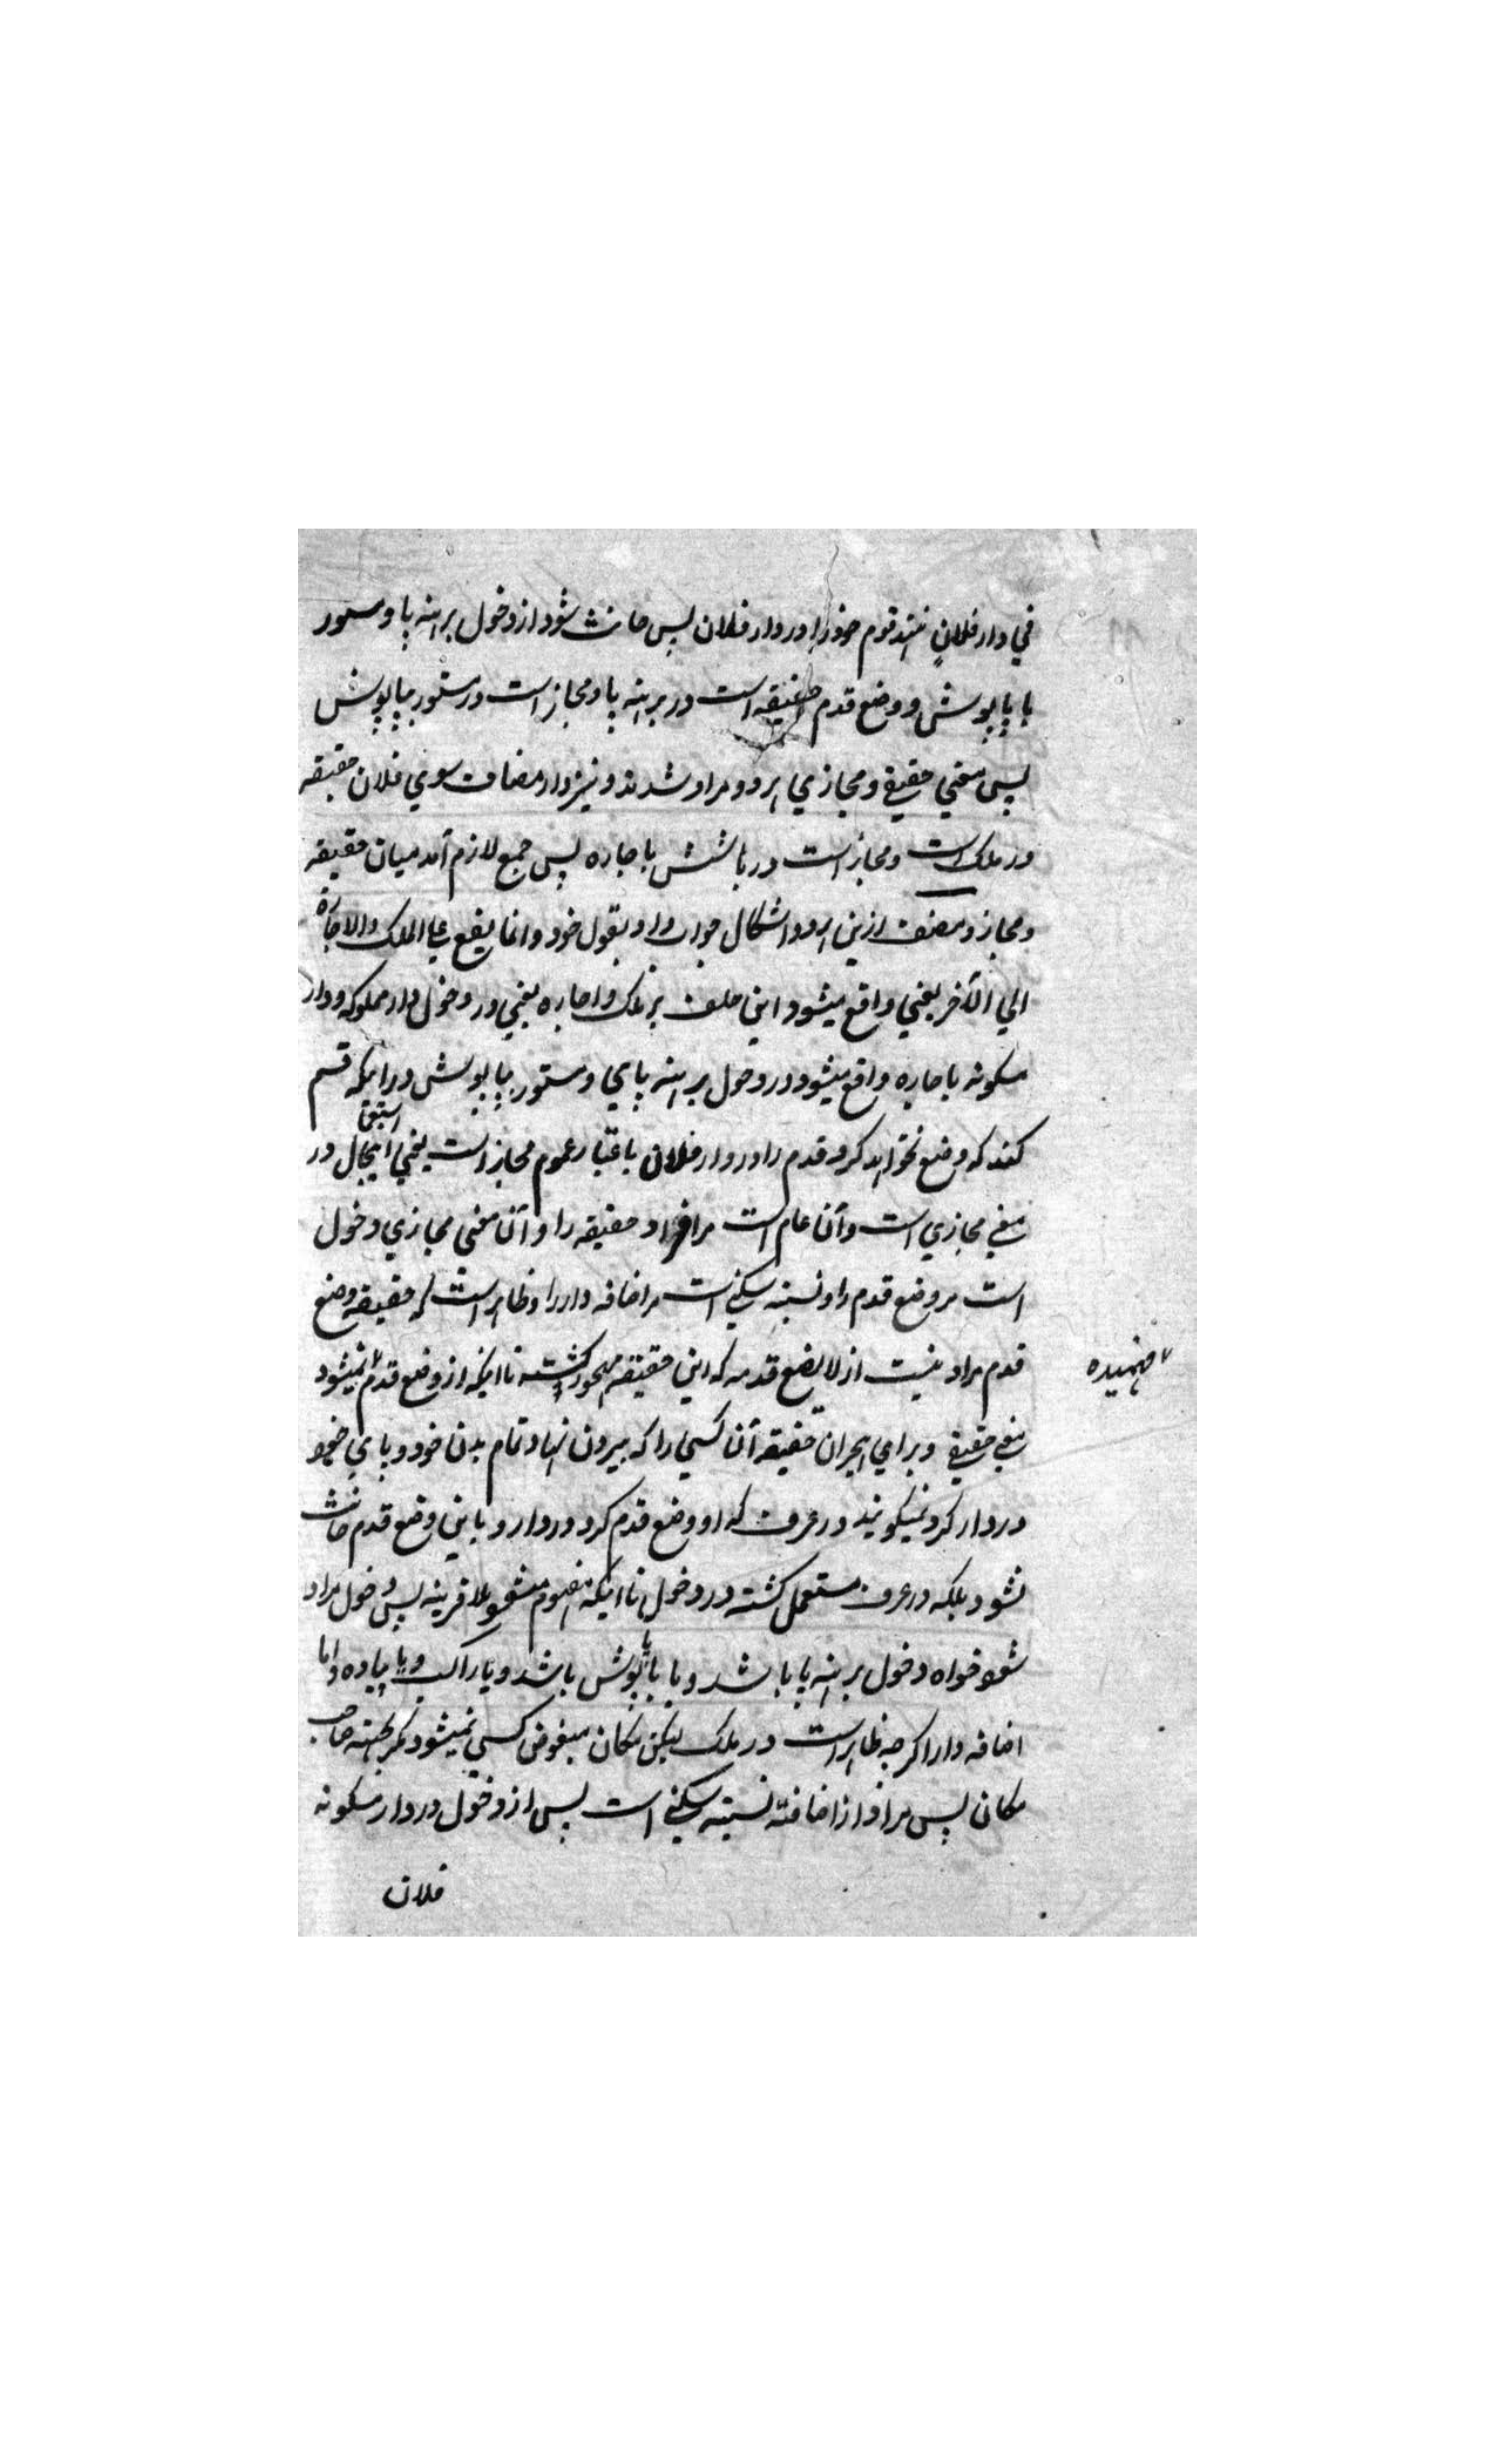 في دار فلانٍ ننهد قدم خود را در دار فلان پس حانث شود از دخول برهنه پا و مستور
با پاپوش و وضع قدم حقیقه است در برهنه پا و مجاز است در مستور بپاپوش
پس معني حقیقے و مجازي هر دو مراد شدند و نیز دار مضاف سوي فلان حقیقه
در ملک است و مجاز است در باشش باجاره پس جمع لازم آمد میان حقیقه
و مجاز و مصنف ازین هر دو اشکال جواب داد بقول خود وانما یقع علي الملک والاجارة
الي الآخر یعني واقع میشود این حلف بر ملک و اجاره یعني در دخول دار مملوکه و دار
مسکونه باجاره واقع میشود در دخول برهنه پاي و مستور بپاپوش در اینکه قسم
کند که وضع نخواهد کرد قدم را در دار فلان باعتبار عموم مجاز است یعني استعمال در
معني مجازي است و آن عام است مر افراد حقیقه را و آن معني مجازي دخول
است مر وضع قدم را و نسبته سکنے است مر اضافه دار را و ظاهر است که حقیقه وضع
قدم مراد نیست از لا یضع قدمه که این حقیقه مهجور گشته تا اینکه از وضع قدم نمیشود
فهمیده
معني حقیقے و براي هجران حقیقه آن کسي را که بیرون نهاد تمام بدن خود و پاي خود
در دار کرد نمیگویند در عرف که او وضع قدم کرد در دار و باین وضع قدم حانث
نشود بلکه در عرف مستعمل گشته در دخول تا اینکه مفهوم میشود بلا قرینه پس دخول مراد
شود خواه دخول برهنه پا باشد و یا با پاپوش باشد و یا راکب و یا پیاده و اما
اضافه دار اگرچه ظاهر است در ملک لیکن مکان مبغوض کسي نمیشود مگر بجهته صاحب
مکان پس مراد از اضافته نسبته سکنے است پس از دخول در دار مسکونه
فلان